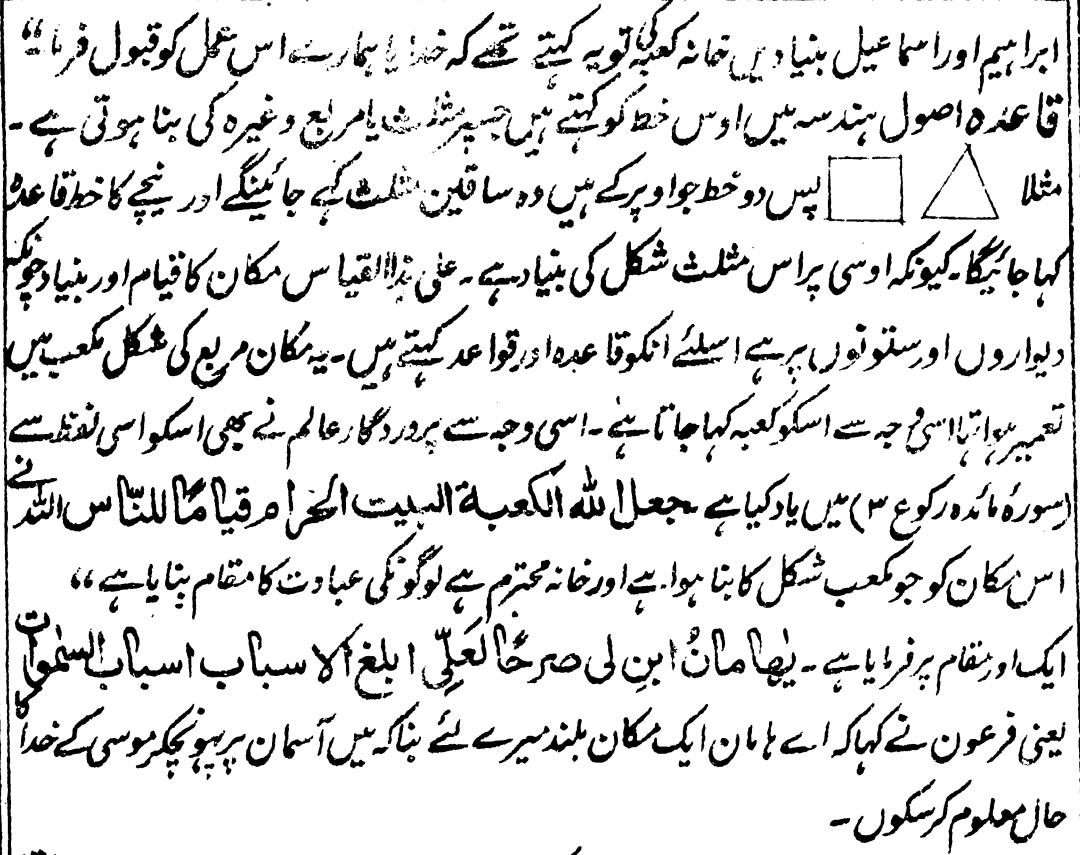 ابراہیم اور اسماعیل بنیادیں خانہ کعبہ کی تو یہ کہتے تھے کہ خدایا ہمارے اس عمل کو قبول فرما“
قاعدہ اصول ہندسہ میں اوس خط کو کہتے ہیں جسپر مثلث یا مربع وغیرہ کی بنا ہوتی ہے ۔
مثلا پس دو خط جو اوپر کے ہیں وہ ساقین مثلث کہے جائینگے اور نیچے کا خط قاعدہ
کہا جائیگا۔ کیونکہ اوسی پر اس مثلث شکل کی بنیاد ہے۔ علی ہذا القیاس مکان کا قیام اور بنیاد چونکہ
دیواروں اور ستونوں پر ہے اسلئے انکو قاعدہ اور قواعد کہتے ہیں۔ یہ مکان مربع کی شکل مکعب میں
تعمیر ہوا تہا اسی وجہ سے اسکو کعبہ کہا جاتا ہے ۔ اسی وجہ سے پروردگار عالم نے بھی اسکو اسی لفظ سے
(سورۂ مائدہ رکوع ۳) میں یاد کیا ہے ۔ جعل الله الکعبة البیت الحرام قیامًا للنّاس اللہ نے
اس مکان کو جو مکعب شکل کا بنا ہوا ہے اور خانہ محترم ہے لوگونکی عبادت کا مقام بنایا ہے “
ایک اور مقام پر فرمایا ہے ۔ یٰھامانُ ابنِ لی صرحًا لعَلِّی ابلغ الاسباب اسباب السمٰوات
یعنی فرعون نے کہا کہ اے ہامان ایک مکان بلند میرے لئے بنا کہ میں آسمان پر پہونچکر موسی کے خدا کا
حال معلوم کر سکوں ۔